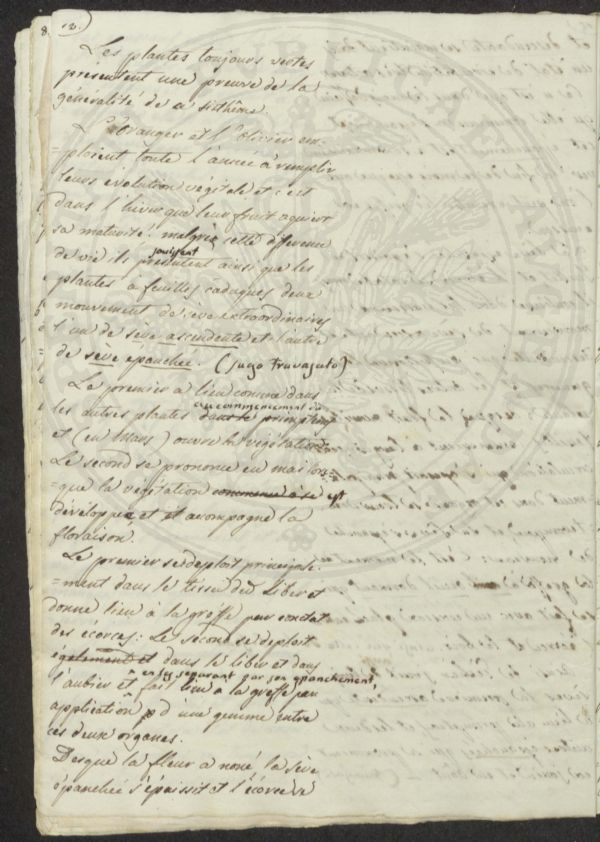 8. 12.
Les plantes toujours vertes
présentent une preuve de la
généralité de ce sisthême
L'Oranger et l'olivier em-
=ploient toute l'année à remplir
leurs évolution végétale et c'est
dans l'hiver que leur fruit aquiert
sa maturité. malgrés cette diference
de vie ils présentent jouissent ainsi que les
plantes à feuilles caduques deux
mouvement de sève extraordinaires
l'un de sève ascendente et l'autre
de sève epanchée. (jugo travasato)
Le premier a lieu comme dans
les autres plantes dans le printems au commencement du
et (en Mars) ouvre la végétation
Le second se prononce en mai lors=
=que la végétation commence à se est
développée et et acompagne la
floraison.
Le premier se deploit principale-
=ment dans le tissu du Liber et
donne lieu à la greffe par contat
des écorces. Le second se deploit
également et dans le liber et dans
l'aubier et en les séparant par son épanchement,
fait lieu à la greffe par
application d'une gemme entre
ces deux organes.
Desque la fleur a noué la sève
épanchée s'épaissit et l'écorce se